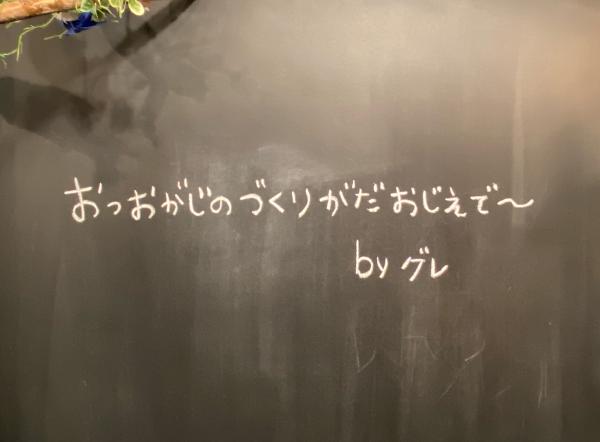 おっおがじのづくりがだおじえで～
by グレ